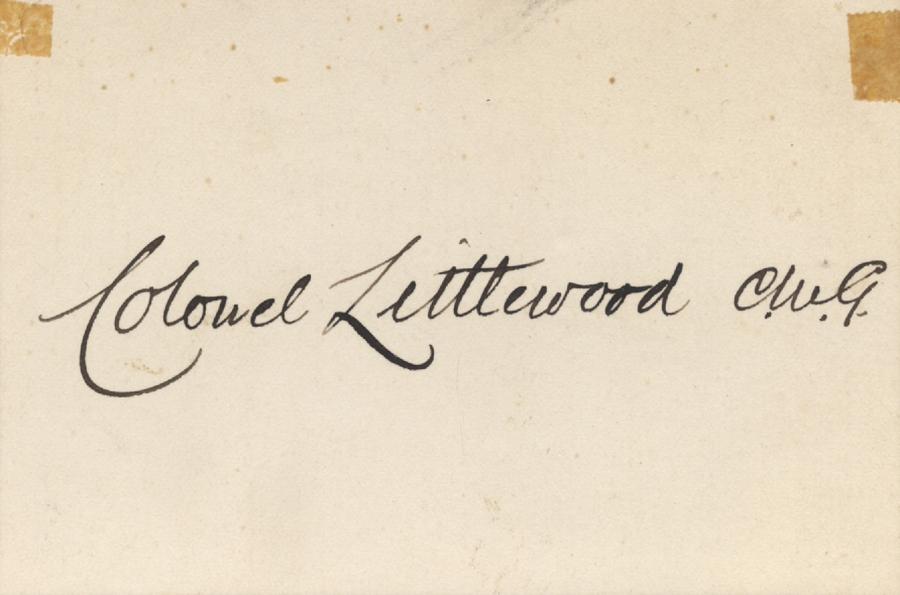 Colonel Littlewood C.M.G.